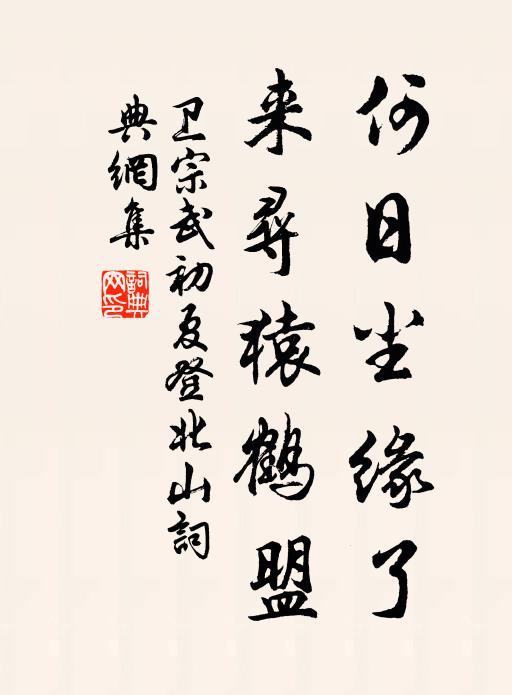 何日尘缘了
来尋猿鹤盟
卫宗武初夏登北山詞
典網集
詞典
网印